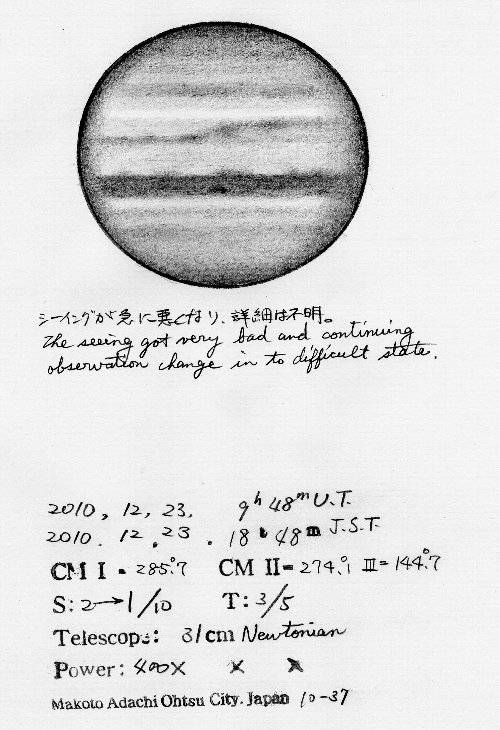 シーイングが急に悪くなり、詳細は不明。
The seeing got very bad and continuing
observation change in to difficult state.
2010, 12, 23, 9h 48m U.T.
2010. 12. 23. 18h 48m J.S.T.
CM I = 285°.7 CM II = 274°.1 III = 144°.7
S: 2→1/10 T: 3/5
Telescope: 31cm Newtonian
Power: 400× × ×
Makoto Adachi Ohtsu City. Japan 10-37